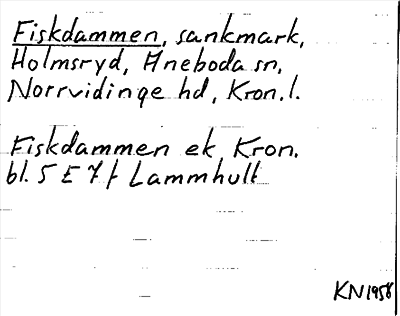 Fiskdammen, sankmark,
Holmsryd, Aneboda sn,
Norrvidinge hd, Kron. l.
Fiskdammen ek Kron.
bl. 5 E 7 f Lammhult
KN 1958